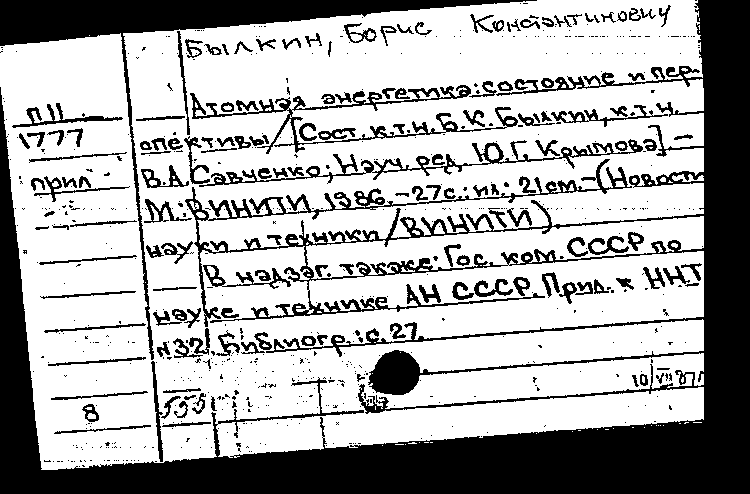 Былкин, Борис Константинович
П 11 Атомная энергетика: состояние и пер-
1777 спективы / [Сост. к.т.н. Б.К. Былкин, к.т.н.
прил В.А. Савченко; Науч. ред. Ю.Г. Крымова]. –
М.: ВИНИТИ, 1986. – 27 с.: ил.; 21 см. – (Новости
науки и техники / ВИНИТИ).
В надзаг. также: Гос. ком. СССР по
науке и технике, АН СССР. Прил. к ННТ
N32. Библиогр.: с. 27.
10 VII 87г
8 555